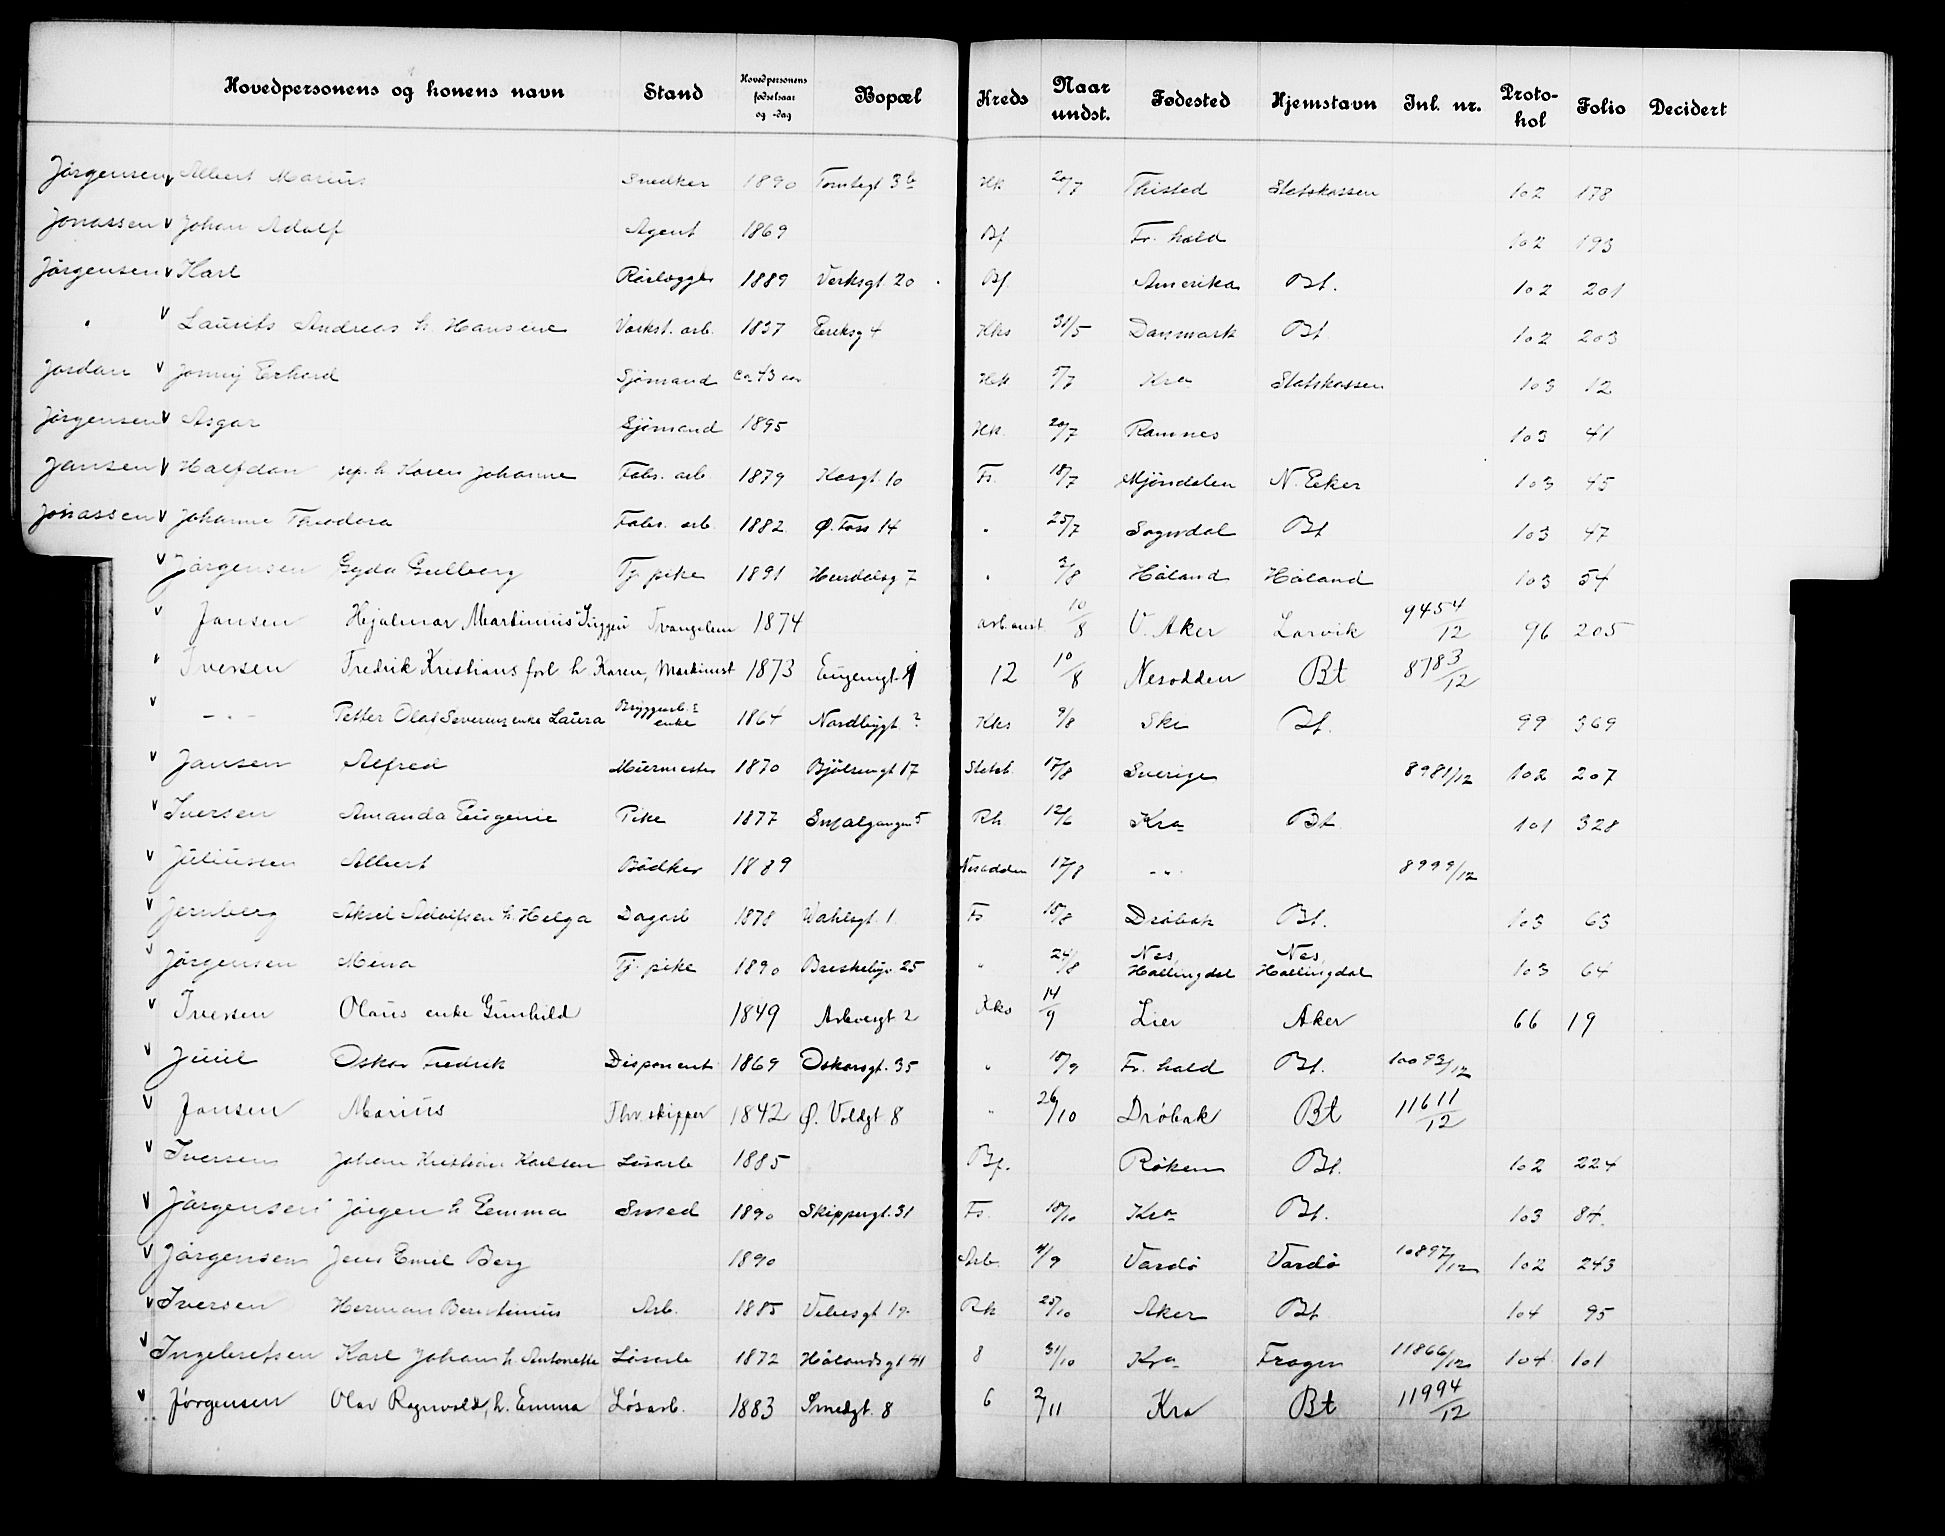 Hovedpersonens og konens navn Stand Hovedpersonens fødselsaar og -dag Bopæl Kreds Naar undst. Fødested Hjemstavn Inl. nr. Protokol Folio Decidert
Jørgensen v Albert Marius Snedker 1890 Tomtegt 3b Hk 20/7 Thisted Statskassen 102 178
Jonassen v Johan Adolf Agent 1869 Bf Fr. hald 102 193
Jørgensen v Karl Rørlægger 1889 Verksgt. 20 Bf. Amerika Bt. 102 201
" v Laurits Andreas h. Hansine Verkst. arb. 1837 Eriksg 4 Kks 31/5 Danmark Bt. 102 203
Jordan v Jonny Erhard Sjømand ca 43 aar Hk 5/7 Kra Statskassen 103 12
Jørgensen v Asgar Sjømand 1895 Hk. 20/7 Ramnes 103 41
Jansen v Halfdan sep. h Karen Johanne Fabr. arb 1879 Korsgt. 10 Fr. 18/7 Mjøndalen N. Eker 103 45
Jonassen v Johanne Theodora Fabr. arb. 1882 Ø. Foss 14 " 25/7 Sogndal Bt 103 47
v Jørgensen Gyda Gulberg Tj. pike 1891 Hurdalsg 7 " 3/8 Høland Høland 103 54
v Jansen Hjalmar Martinius Tvangslem 1874 arb.anst. 10/8 V. Aker Larvik 9454/12 96 205
v Iversen Fredrik Kristians forl h. Karen, Maskinist 1873 Eugenigt. 12 10/8 Nesodden Bt 8783/12
v - " - Petter Olaf Severins enke Laura Bryggearb.s enke 1864 Nordbygt ? Kks 9/8 Ski Bt. 99 369
v Jansen Alfred Murmester 1870 Bjølsengt 17 Statsb. 17/8 Sverige 8981/12 102 207
v Iversen Amanda Eugenie Pike 1877 Smalgangen 5 Rk 12/6 Kra Bt. 101 328
v Juliussen Albert Bødker 1889 Nesodden 17/8 - " - 8999/12
v Jernberg Aksel Adolfsen h. Helga Dagarb 1878 Wahlsgt. 1 Fr 15/8 Drøbak Bt. 103 63
v Jørgensen Mina Tj. pike 1890 Briskebyv. 25 " 24/8 Nes, Hallingdal Nes, Hallingdal 103 64
v Iversen Olaus enke Gunhild 1849 Arbeiergt 2 Kks 14/9 Lier Aker 66 19
v Juul Oskar Fredrik Disponent 1869 Oskarsgt. 35 " 18/9 Fr. hald Bt. 10093/12
v Jansen Marius Fhv. skipper 1842 Ø. Voldgt 8 " 26/10 Drøbak Bt 11611/12
v Iversen Johan Kristian Karlsen Løsarb 1885 Bf. Røken Bt. 102 224
v Jørgensen Jørgen h Emma Smed 1890 Skippergt. 31 Fr. 18/10 Kra Bt. 103 84.
v Jørgensen Jens Emil Berg 1890 Arb. 4/9 Vardø Vardø 10897/12 102 243
v Iversen Herman Berntinius Arb. 1885 Vibesgt 19 Rk 25/10 Aker Bt 104 95
v Ingebretsen Karl Johan h. Antonette Løsarb 1872 Hølandsgt 41 8 31/10 Kra Frogn 11866/12 104 101
v Jørgensen Olav Ragnvald, h. Emma Løsarb. 1883 Smedgt. 8 6 2/11 Kra Bt 11994/12